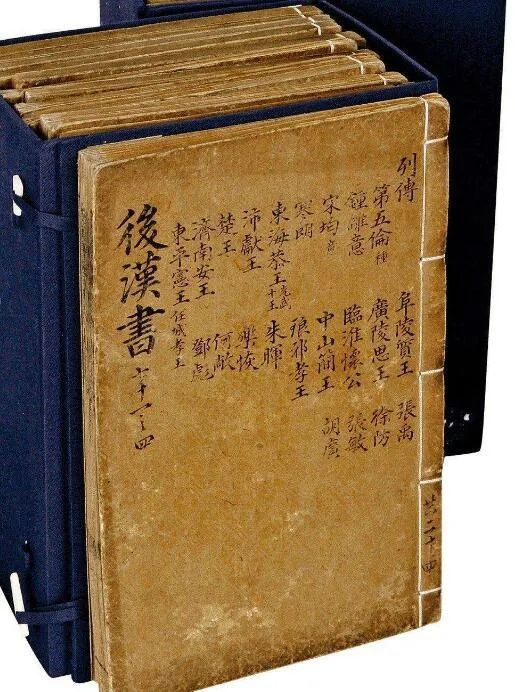 列傳 阜陵質王 張禹
第五倫種 廣陵思王 徐防
鍾離意 臨淮懷公 張敏
宋均意 中山簡王 胡廣
寒朗 琅邪孝王
東海恭王光武十王 朱暉
沛獻王 樂恢
楚王 何敞
濟南安王 鄧彪
東平憲王任城孝王
後漢書 七十一之四
共二十四